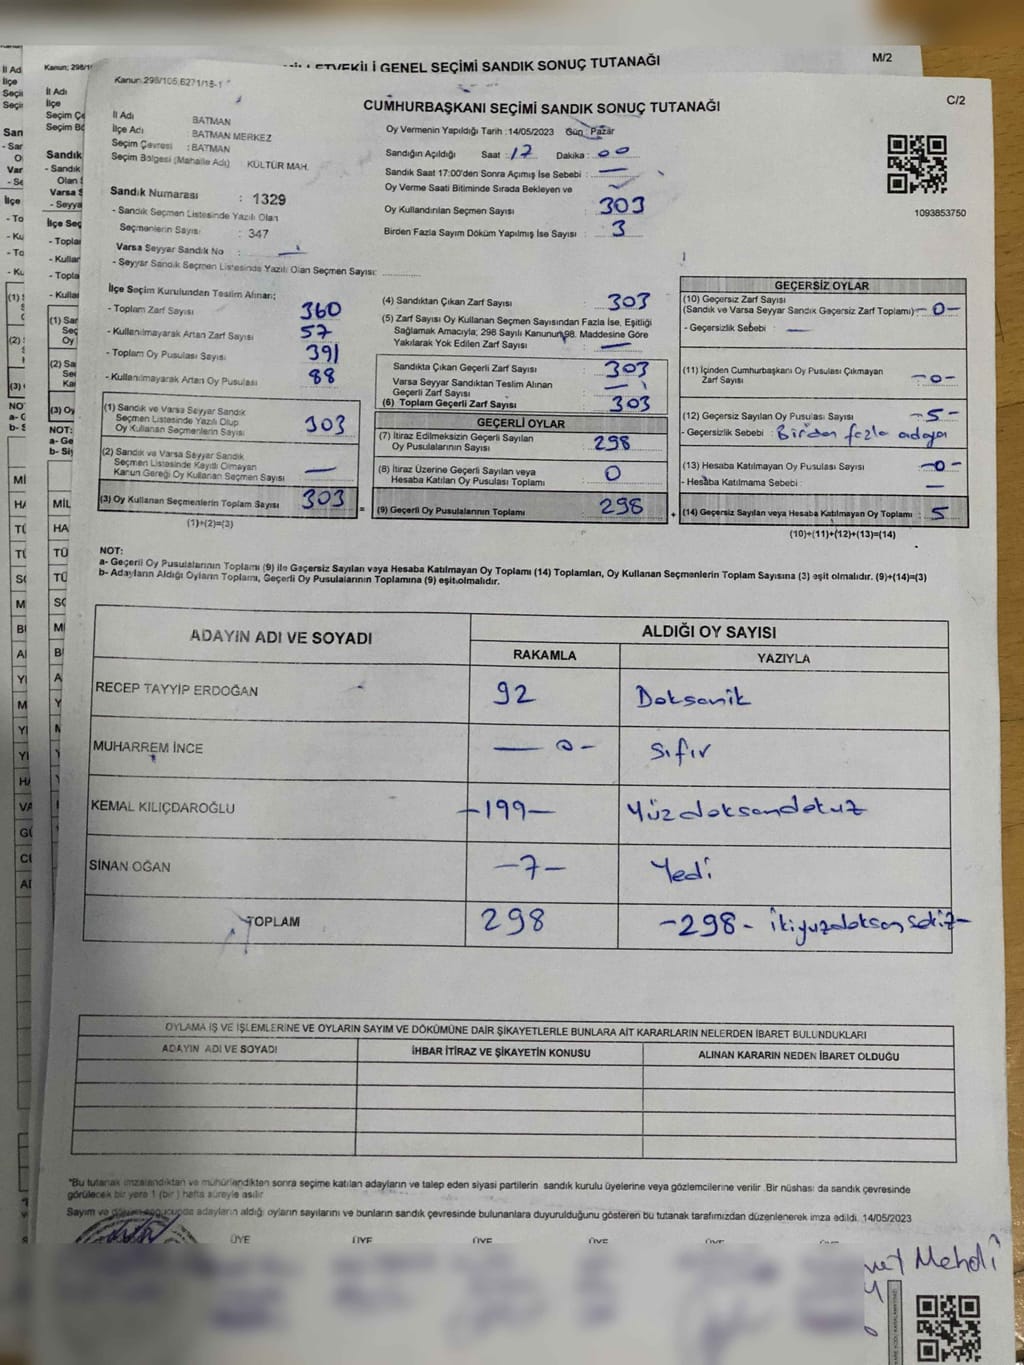 GENEL SEÇİMİ SANDIK SONUÇ TUTANAĞI
M/2
Kanun: 298/105,6271/18-1
C/2
CUMHURBAŞKANI SEÇİMİ SANDIK SONUÇ TUTANAĞI
İl Adı BATMAN
İlçe Adı : BATMAN MERKEZ
Seçim Çevresi : BATMAN
Seçim Bölgesi (Mahalle Adı) KÜLTÜR MAH.
Oy Vermenin Yapıldığı Tarih : 14/05/2023 Gün : Pazar
Sandığın Açıldığı Saat : 17 Dakika : 00
Sandık Saat 17:00'den Sonra Açımış İse Sebebi : —
Oy Verme Saati Bitiminde Sırada Bekleyen ve
Oy Kullandırılan Seçmen Sayısı 303
Birden Fazla Sayım Döküm Yapılmış İse Sayısı : 3
1093853750
Sandık Numarası : 1329
- Sandık Seçmen Listesinde Yazılı Olan
Seçmenlerin Sayısı : 347
Varsa Seyyar Sandık No : —
- Seyyar Sandık Seçmen Listesinde Yazılı Olan Seçmen Sayısı:
İlçe Seçim Kurulundan Teslim Alınan;
- Toplam Zarf Sayısı 360
- Kullanılmayarak Artan Zarf Sayısı 57
- Toplam Oy Pusulası Sayısı 391
- Kullanılmayarak Artan Oy Pusulası 88
(1) Sandık ve Varsa Seyyar Sandık
Seçmen Listesinde Yazılı Olup
Oy Kullanan Seçmenlerin Sayısı 303
(2) Sandık ve Varsa Seyyar Sandık
Seçmen Listesinde Kayıtlı Olmayan
Kanun Gereği Oy Kullanan Seçmen Sayısı —
(3) Oy Kullanan Seçmenlerin Toplam Sayısı 303
(1)+(2)=(3)
(4) Sandıktan Çıkan Zarf Sayısı : 303
(5) Zarf Sayısı Oy Kullanan Seçmen Sayısından Fazla İse, Eşitliği
Sağlamak Amacıyla; 298 Sayılı Kanunun 98. Maddesine Göre
Yakılarak Yok Edilen Zarf Sayısı : —
Sandıkta Çıkan Geçerli Zarf Sayısı : 303
Varsa Seyyar Sandıktan Teslim Alınan
Geçerli Zarf Sayısı : —
(6) Toplam Geçerli Zarf Sayısı : 303
GEÇERLİ OYLAR
(7) İtiraz Edilmeksizin Geçerli Sayılan
Oy Pusulalarının Sayısı : 298
(8) İtiraz Üzerine Geçerli Sayılan veya
Hesaba Katılan Oy Pusulası Toplamı : 0
(9) Geçerli Oy Pusulalarının Toplamı : 298
GEÇERSİZ OYLAR
(10) Geçersiz Zarf Sayısı
(Sandık ve Varsa Seyyar Sandık Geçersiz Zarf Toplamı) : -0-
- Geçersizlik Sebebi : —
(11) İçinden Cumhurbaşkanı Oy Pusulası Çıkmayan
Zarf Sayısı -0-
(12) Geçersiz Sayılan Oy Pusulası Sayısı : -5-
- Geçersizlik Sebebi : Birden fazla aday
(13) Hesaba Katılmayan Oy Pusulası Sayısı : -0-
- Hesaba Katılmama Sebebi : —
(14) Geçersiz Sayılan veya Hesaba Katılmayan Oy Toplamı : 5
(10)+(11)+(12)+(13)=(14)
NOT:
a- Geçerli Oy Pusulalarının Toplamı (9) ile Geçersiz Sayılan veya Hesaba Katılmayan Oy Toplamı (14) Toplamları, Oy Kullanan Seçmenlerin Toplam Sayısına (3) eşit olmalıdır. (9)+(14)=(3)
b- Adayların Aldığı Oyların Toplamı, Geçerli Oy Pusulalarının Toplamına (9) eşit olmalıdır.
ADAYIN ADI VE SOYADI
ALDIĞI OY SAYISI
RAKAMLA YAZIYLA
RECEP TAYYİP ERDOĞAN 92 Doksanik
MUHARREM İNCE — 0 - Sıfır
KEMAL KILIÇDAROĞLU -199- Yüzdoksandokuz
SİNAN OĞAN -7- Yedi
TOPLAM 298 -298- ikiyuzdoksansekiz-
OYLAMA İŞ VE İŞLEMLERİNE VE OYLARIN SAYIM VE DÖKÜMÜNE DAİR ŞİKAYETLERLE BUNLARA AİT KARARLARIN NELERDEN İBARET BULUNDUKLARI
ADAYIN ADI VE SOYADI İHBAR İTİRAZ VE ŞİKAYETİN KONUSU ALINAN KARARIN NEDEN İBARET OLDUĞU
*Bu tutanak imzalandıktan ve mühürlendikten sonra seçime katılan adayların ve talep eden siyasi partilerin sandık kurulu üyelerine veya gözlemcilerine verilir. Bir nüshası da sandık çevresinde
görülecek bir yere 1 (bir) hafta süreyle asılır.
Sayım ve döküm sonucunda adayların aldığı oyların sayılarını ve bunların sandık çevresinde bulunanlara duyurulduğunu gösteren bu tutanak tarafımızdan düzenlenerek imza edildi. 14/05/2023
ÜYE ÜYE ÜYE ÜYE ÜYE
Mehdi